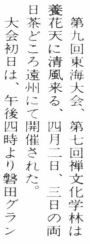 第九回東海大会、第七回禅文化学林は
養花天に清風来る、四月二日、三日の両
日茶どころ遠州にて開催された。
大会初日は、午後四時より磐田グラン